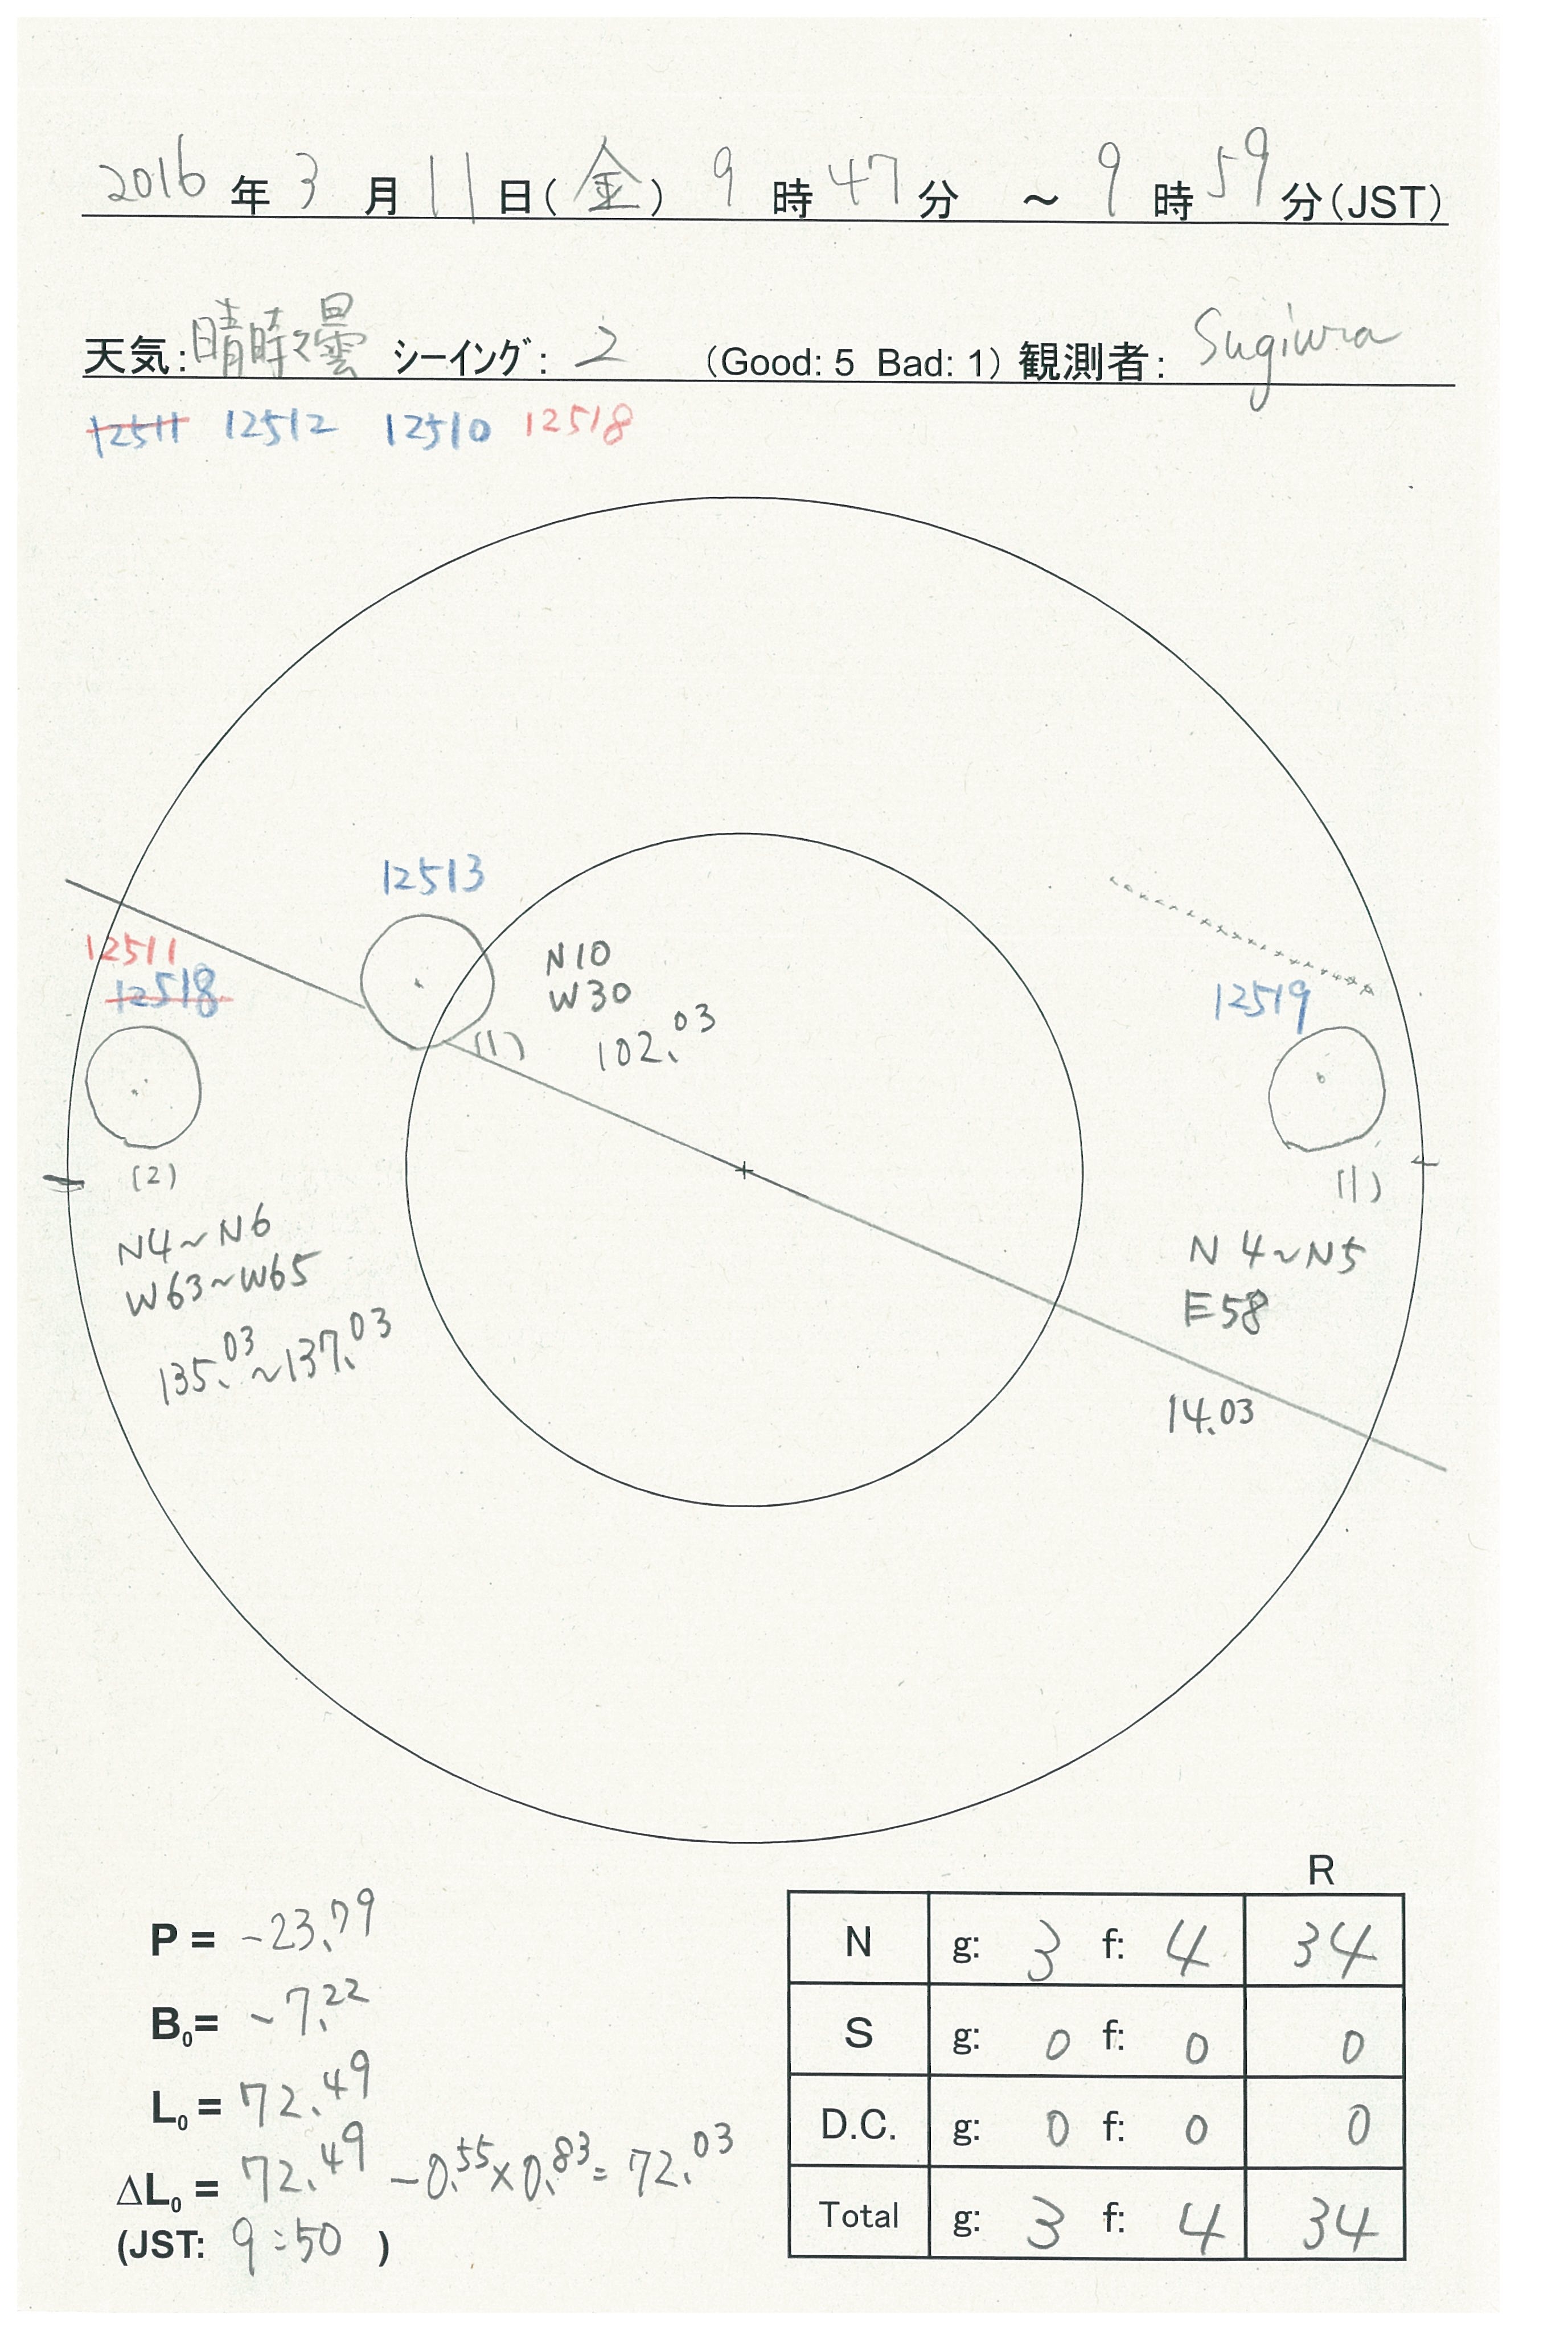 2016年3月11日(金) 9時47分 ~ 9時59分(JST)
天気:晴時々曇 シーイング: 2 (Good: 5 Bad: 1) 観測者: Sugiura
12511 12512 12510 12518
12513
12511
12518
N10
W30
102.03
(1)
12519
(2)
(1)
N4~N6
W63~W65
135.03~137.03
N4~N5
E58
14.03
R
P = -23.79
B0= -7.22
L0 = 72.49
ΔL0 = 72.49 -0.55×0.83= 72.03
(JST: 9:50 )
N g: 3 f: 4 34
S g: 0 f: 0 0
D.C. g: 0 f: 0 0
Total g: 3 f: 4 34